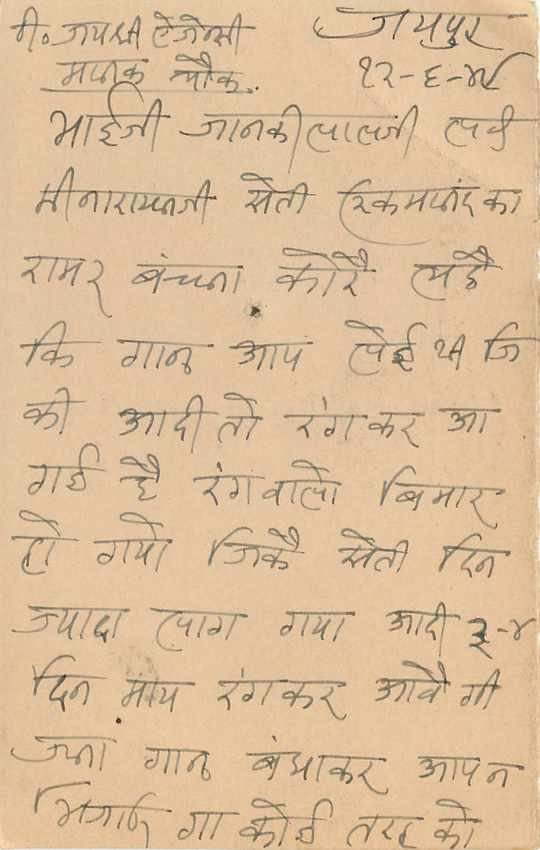 मी. जयश्री ऐजेन्सी जयपुर
माणक चौक. १२-६-४५
भाईजी जानकीलालजी लक्ष्
मीनारायणजी सेती रिकमचंद का
रामर बंचना कोरै लडै
कि गान आप लेई थी जि
की आदी तो रंग कर आ
गई है रंगवालो बिमार
हो गयो जिकै सेती दिन
ज्यादा लाग गया आदी ३-४
दिन मांय रंग कर आवै गी
जना गान बंधाकर आप न
भिजाई गा कोई तरह को